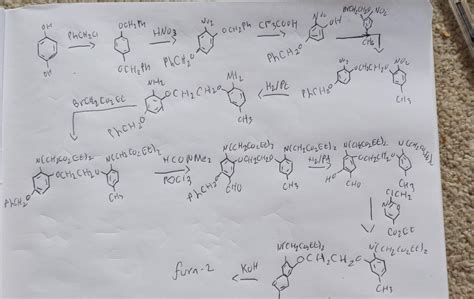 OH
OH
PhCH2Cl
OCH2Ph
OCH2Ph
HNO3
NO2
OCH2Ph
OCH2Ph
CF3COOH
NO2
OH
PhCH2O
NO2
CH3
NO2
OCH2CH2O
NO2
PhCH2O
CH3
H2/Pt
NH2
OCH2CH2O
NH2
PhCH2O
CH3
BrCH2CO2Et
N(CH2CO2Et)2
OCH2CH2O
N(CH2CO2Et)2
PhCH2O
CH3
HCONMe2
POCl3
N(CH2CO2Et)2
OCH2CH2O
N(CH2CO2Et)2
PhCH2O
CHO
CH3
H2/Pd
N(CH2CO2Et)2
OCH2CH2O
N(CH2CO2Et)2
HO
CHO
CH3
ClCH2
CO2Et
N(CH2CO2Et)2
OCH2CH2O
N(CH2CO2Et)2
CH3
KOH
fura-2